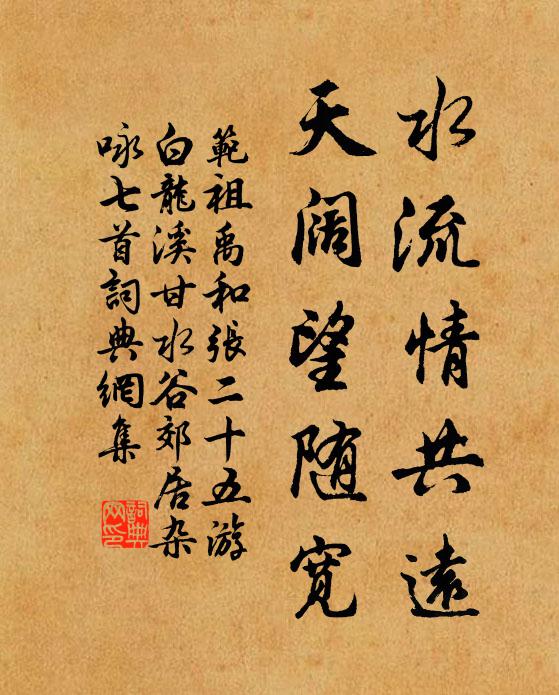 水流情共遠
天阔望随寬
範祖禹和張二十五游
白龍溪甘水谷郊居杂
咏七首詞典網集
詞典网印